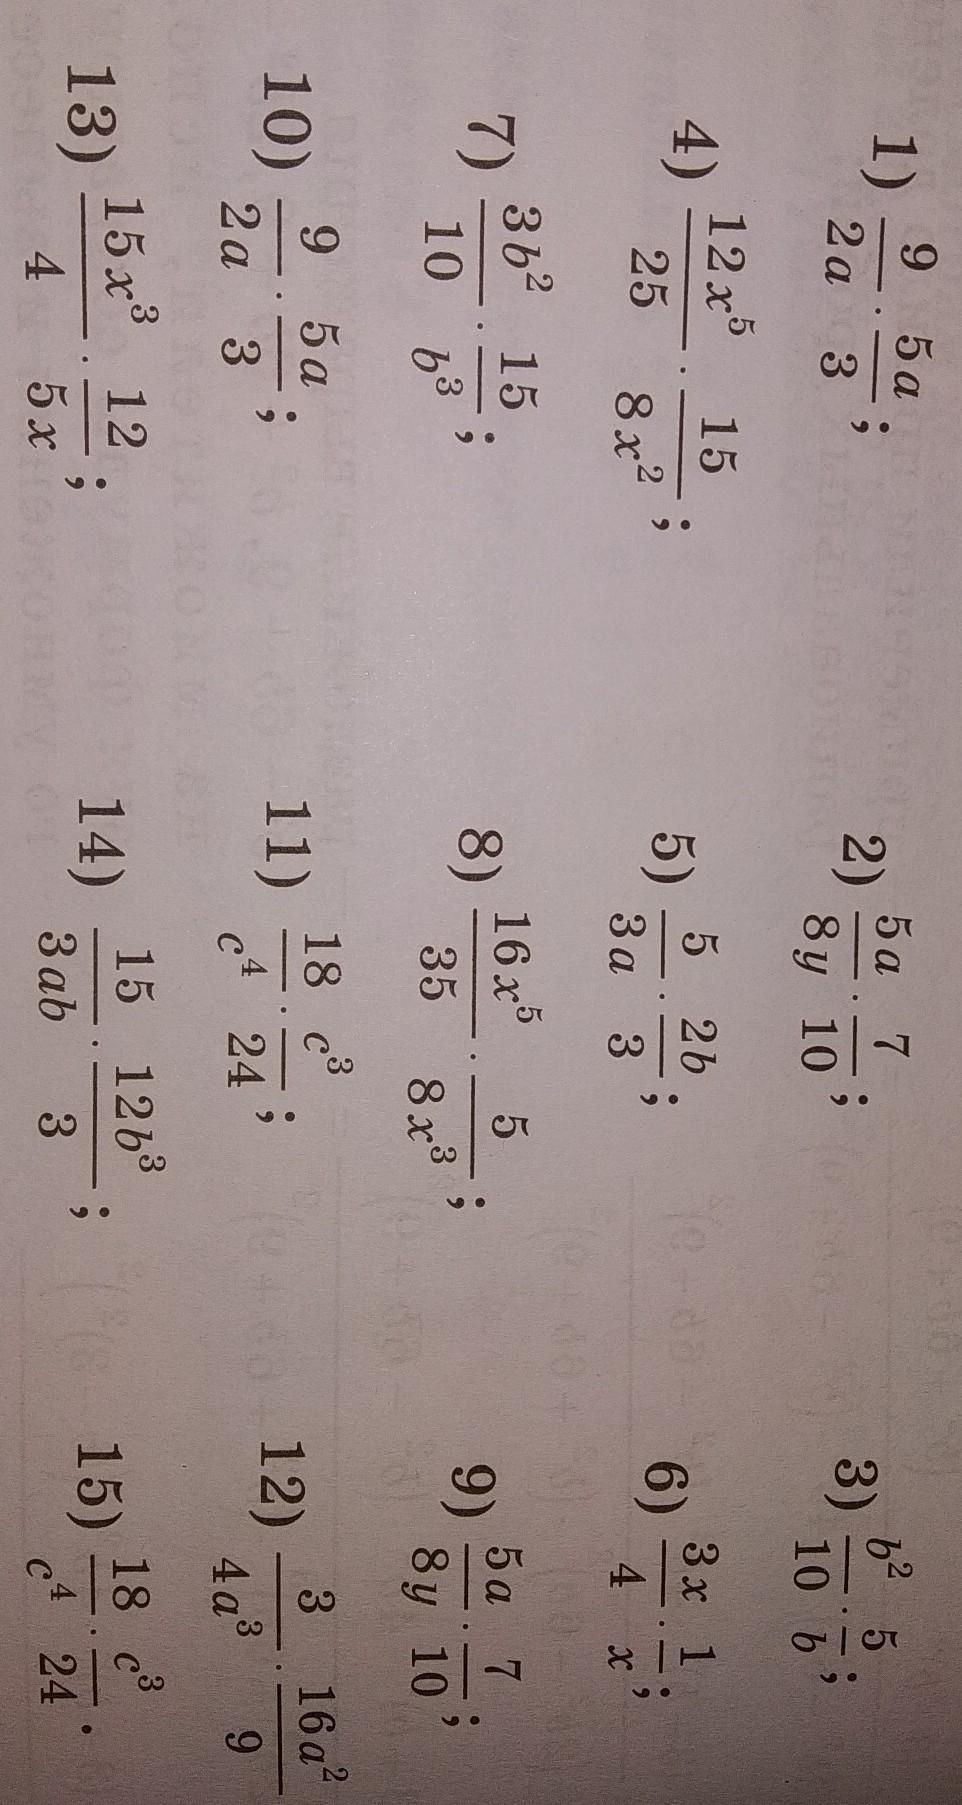 1) 9/2a · 5a/3; 2) 5a/8y · 7/10; 3) b²/10 · 5/b;
4) 12x⁵/25 · 15/8x²; 5) 5/3a · 2b/3; 6) 3x/4 · 1/x;
7) 3b²/10 · 15/b³; 8) 16x⁵/35 · 5/8x³; 9) 5a/8y · 7/10;
10) 9/2a · 5a/3; 11) 18/c⁴ · c³/24; 12) 3/4a³ · 16a²/9
13) 15x³/4 · 12/5x; 14) 15/3ab · 12b³/3; 15) 18/c⁴ · c³/24.